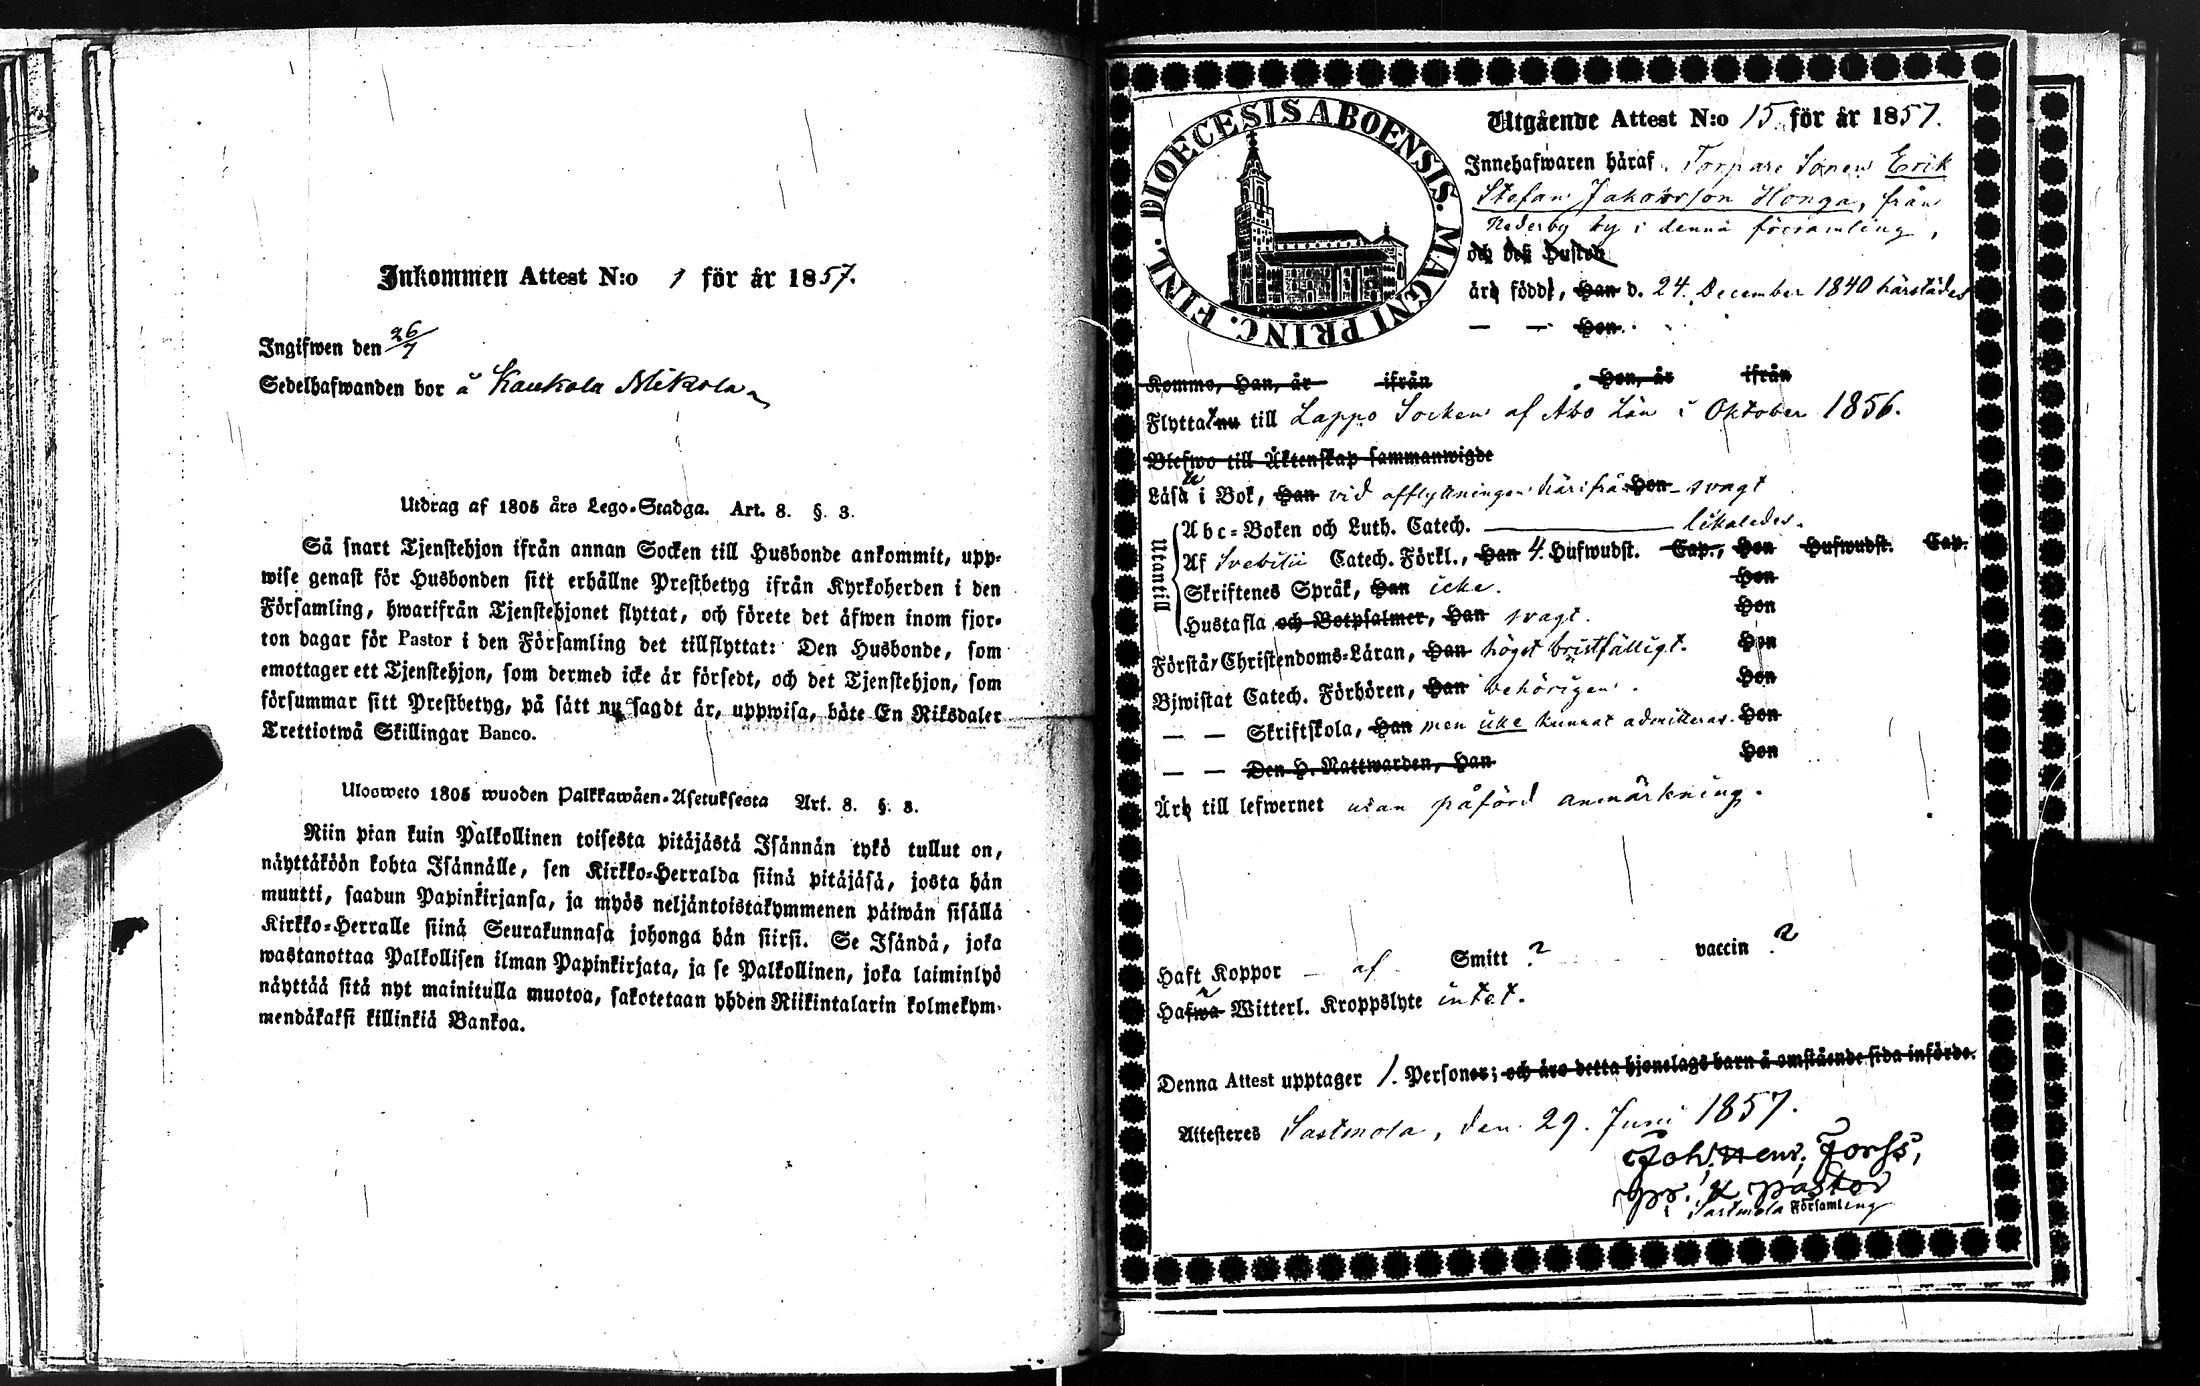 Inkommen Attest N:o 1 för år 1857.
Ingifwen den 26/7
Sedelhafwanden bor å Kaukola Mikola
Utdrag af 1805 års Lego-Stadga. Art. 8. §. 3.
Så snart Tjenstehjon ifrån annan Socken till Husbonde ankommit, upp-
wise genast för Husbonden sitt erhållne Prestbetyg ifrån Kyrkoherden i den
Församling, hwarifrån Tjenstehjonet flyttat, och förete det äfwen inom fjor-
ton dagar för Pastor i den Församling det tillflyttat: Den Husbonde, som
emottager ett Tjenstehjon, som dermed icke är försedt, och det Tjenstehjon, som
försummar sitt Prestbetyg, på sätt nu sagdt är, uppwisa, böte En Riksdaler
Trettiotwå Skillingar Banco.
Ulosweto 1805 wuoden Palkkawäen-Asetuksesta Art. 8. §. 3.
Niin pian kuin Palkollinen toisesta pitäjästä Isännän tykö tullut on,
näyttäköön kohta Isännälle, sen Kirkko-Herralda siinä pitäjäsä, josta hän
muutti, saadun Papinkirjansa, ja myös neljäntoistakymmenen päiwän sisällä
Kirkko-Herralle siinä Seurakunnasa johonga hän siirsi. Se Isändä, joka
wastanottaa Palkollisen ilman Papinkirjata, ja se Palkollinen, joka laiminlyö
näyttää sitä nyt mainitulla muotoa, sakotetaan yhden Riikintalarin kolmekym-
mendäkaksi killinkiä Bankoa.
DIOECESIS ABOENSIS. MAGNI PRINC. FINL.
Utgående Attest N:o 15 för år 1857.
Innehafwaren häraf, Torpare Sonen Erik
Stefan Jakobsson Honga, från
Nederby by i denna församling,
och des Hustru
äro född, Han d. 24 December 1840 härstädes
— — Hon
Komme, Han, år ifrån Hon, år ifrån
Flyttat nu till Lappo Socken af Åbo Län i Oktober 1856.
Blefwo till Äktenskap sammanwigde
Läsa i Bok, Han vid afflyttningen härifrån Hon svagt
Utantill
Abc-Boken och Luth. Catech. likaledes.
Af Svebilii Catech. Förkl., Han 4. Hufwudst. Cap., Hon Hufwudst. Cap.
Skriftenes Språk, Han icke. Hon
Hustafla och Botpsalmer, Han svagt. Hon
Förstår Christendoms-Läran, Han högst bristfälligt. Hon
Bjwistat Catech. Förhören, Han behörigen. Hon
— — Skriftskola, Han men icke kunnat admitteras. Hon
— — Den H. Nattwarden, Han Hon
Äro till lefwernet utan påförd anmärkning.
Haft Koppor — af Smitt ? vaccin ?
Hafwa Witterl. Kroppslyte intet.
Denna Attest upptager 1. Personer; och äro detta hjonelags barn å omstående sida införde.
Attesteres Sastmola, den 29. Juni 1857.
Joh. Henr. Forss,
Pastor
i Sastmola Församling